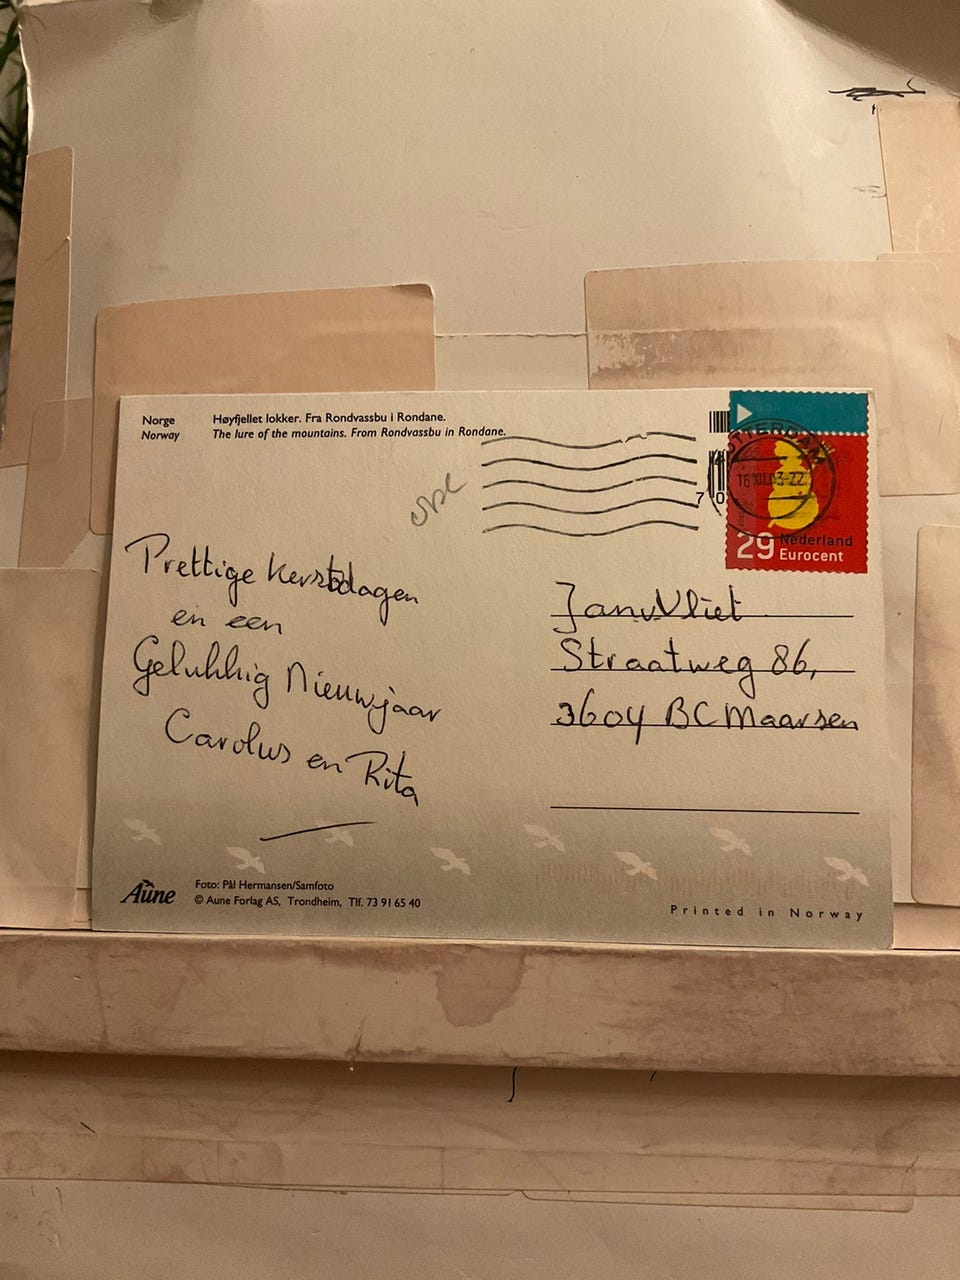 Norge
Norway
Høyfjellet lokker. Fra Rondvassbu i Rondane.
The lure of the mountains. From Rondvassbu in Rondane.
ROTTERDAM
29 Nederland
Eurocent
Prettige kerstdagen
en een
Gelukkig Nieuwjaar
Carolus en Rita
Jan v Vliet
Straatweg 86,
3604 BC Maarsen
Aune
Foto: Pål Hermansen/Samfoto
© Aune Forlag AS, Trondheim, Tlf. 73 91 65 40
Printed in Norway